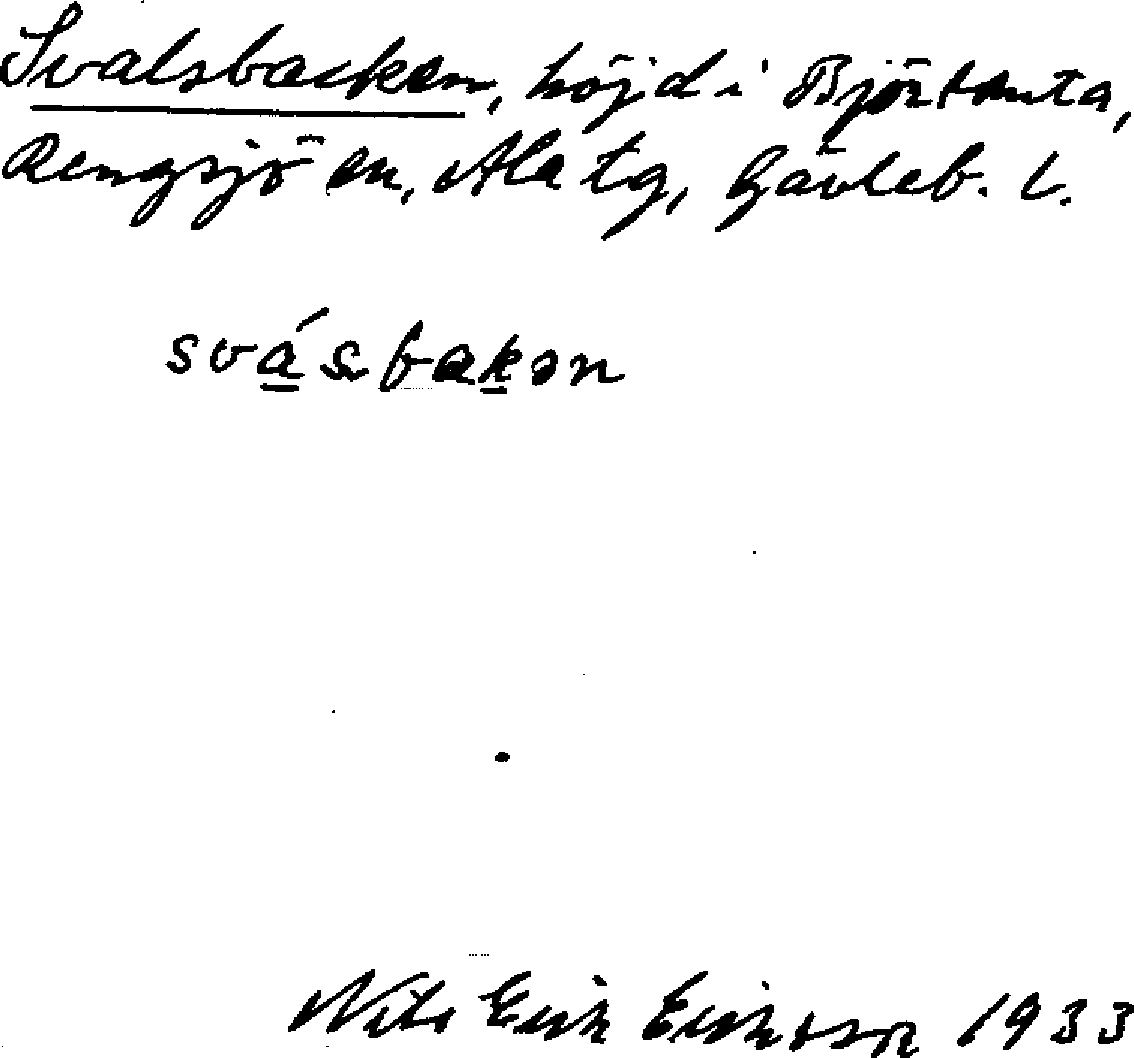 Svalsbacken, höjd i Björtomta,
Rengsjö sn, Ala tg, Gävleb. l.
svásbakən
Nils Erik Eriksson 1933